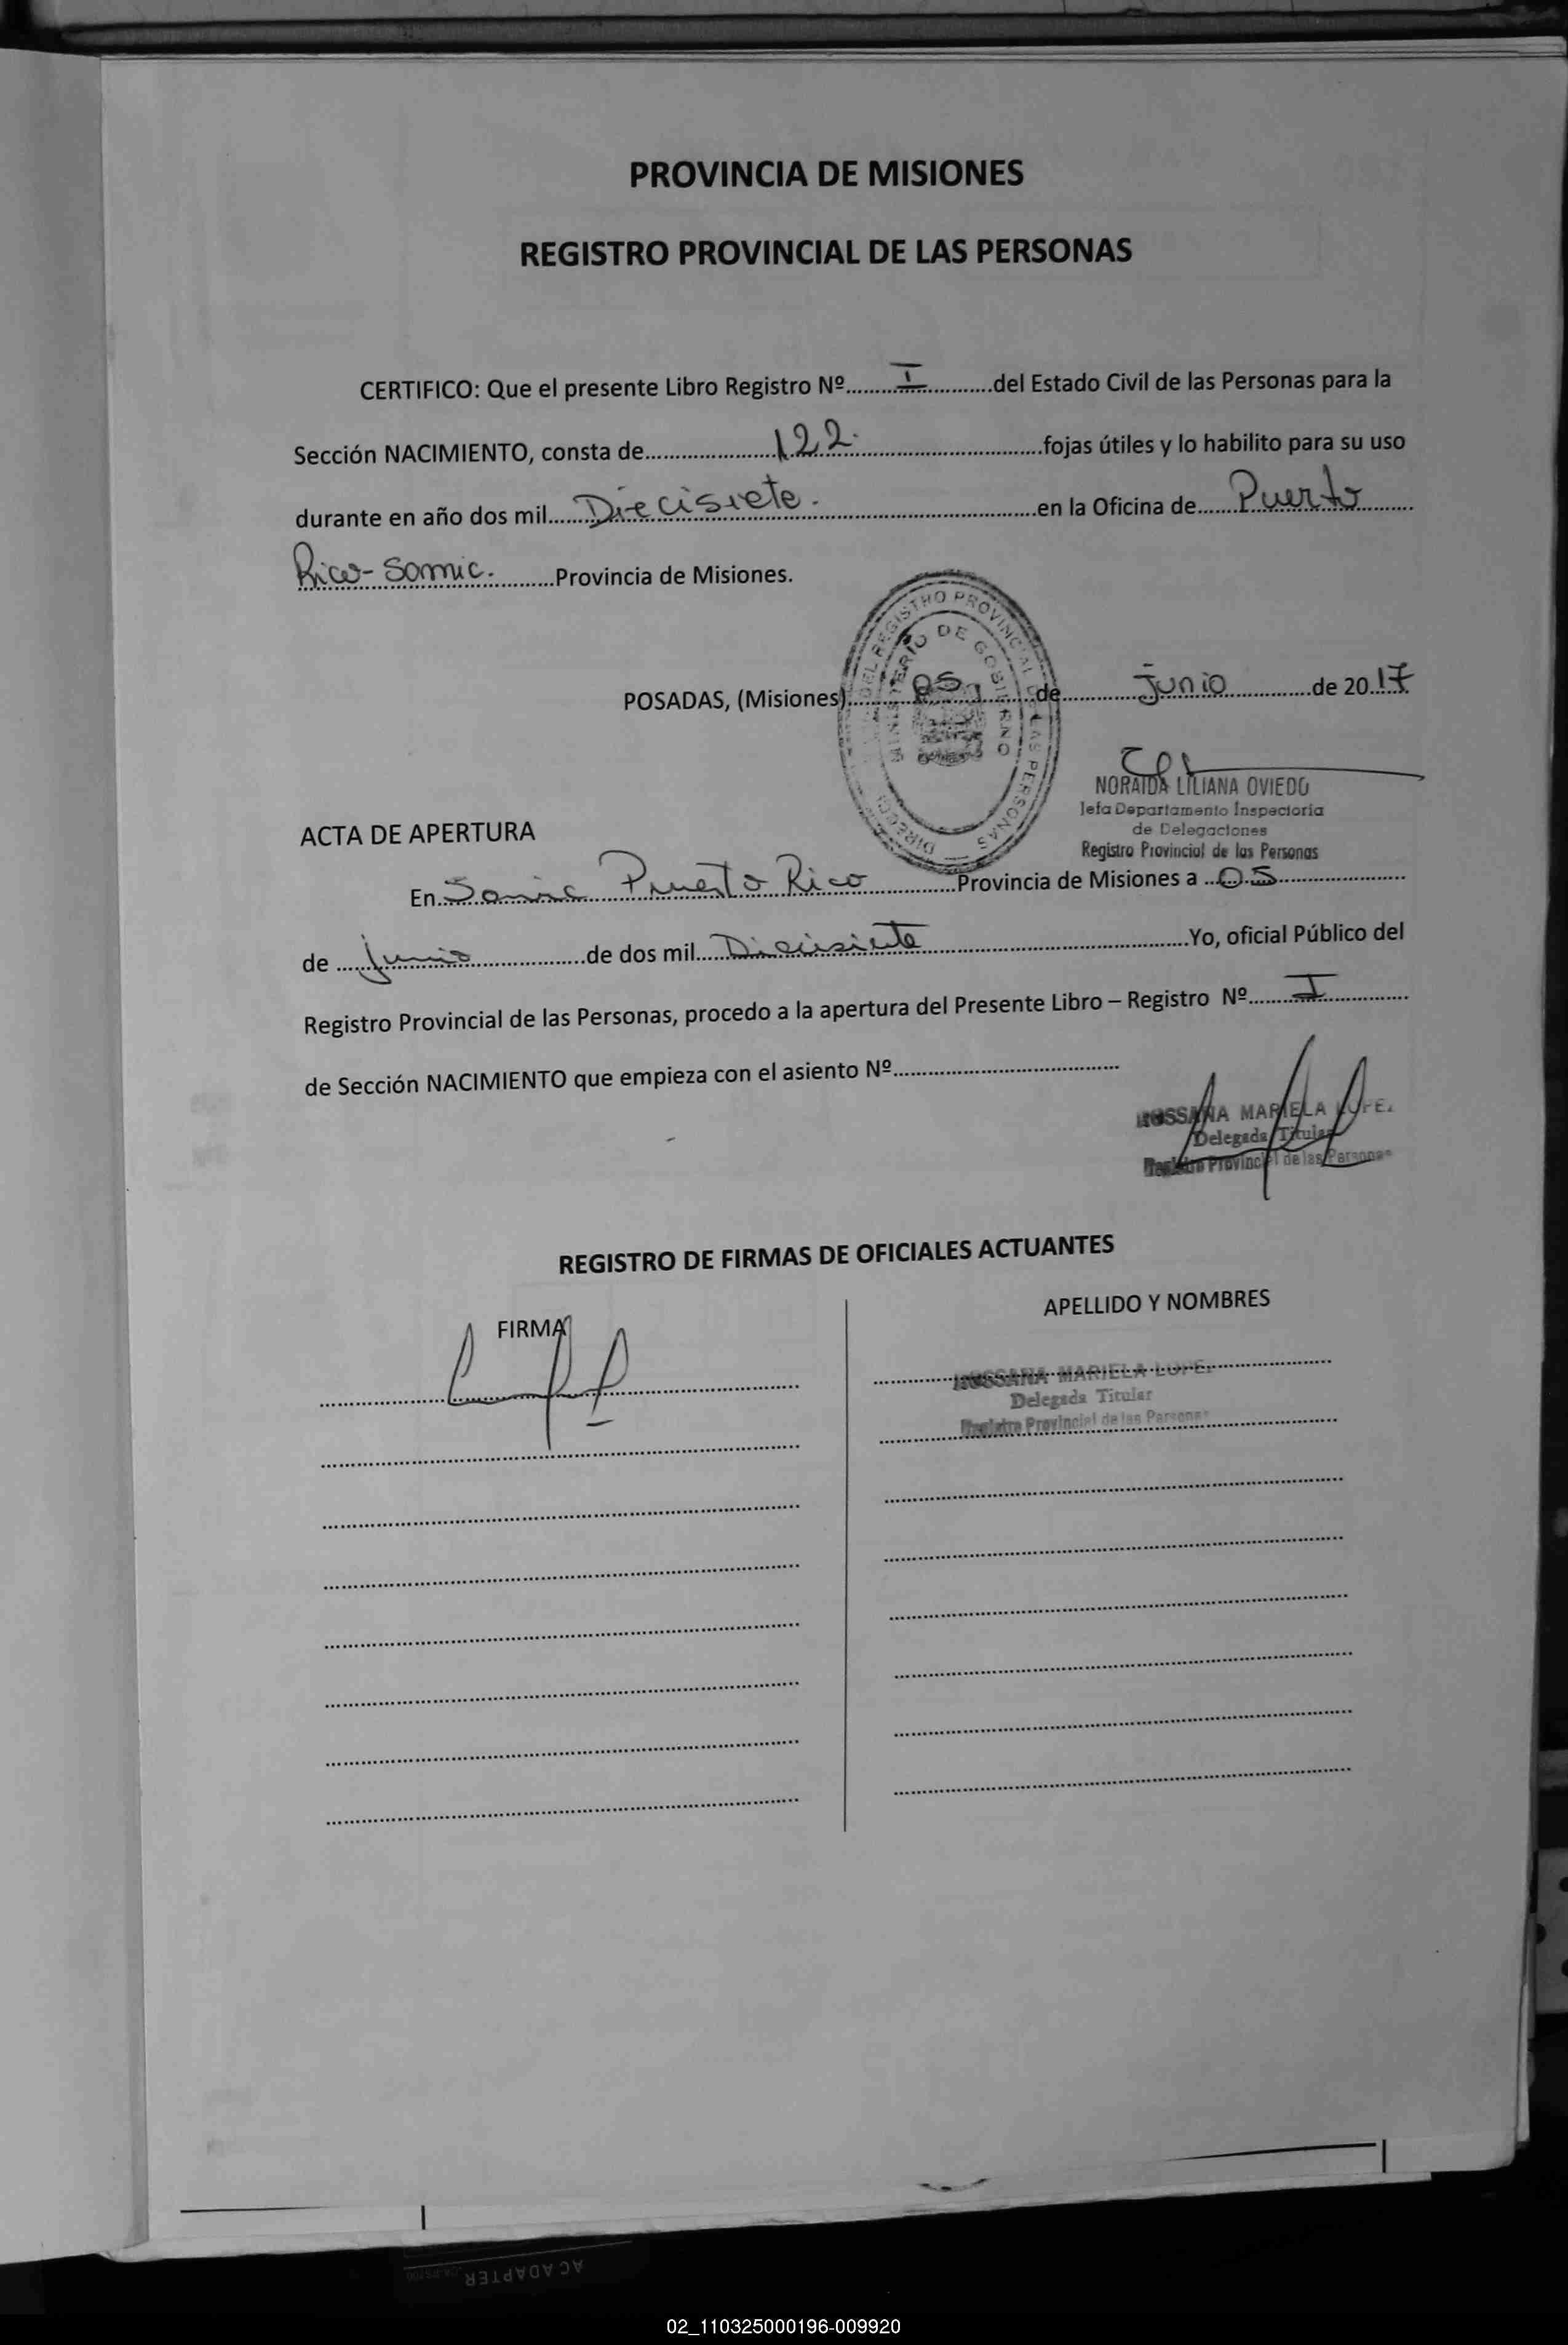 PROVINCIA DE MISIONES
REGISTRO PROVINCIAL DE LAS PERSONAS
CERTIFICO: Que el presente Libro Registro Nº.........I..........del Estado Civil de las Personas para la
Sección NACIMIENTO, consta de....................122.............................fojas útiles y lo habilito para su uso
durante en año dos mil.......Diecisiete.....................................en la Oficina de......Puerto........
Rico-Samic...........Provincia de Misiones.
POSADAS, (Misiones)..........05..........de............junio.............de 2017
DEL REGISTRO PROVINCIAL DE LAS PERSONAS
MINISTERIO DE GOBIERNO
NORAIDA LILIANA OVIEDO
Jefa Departamento Inspectoria
de Delegaciones
Registro Provincial de las Personas
ACTA DE APERTURA
En Samic Puerto Rico..........Provincia de Misiones a ..05....................
de ....junio..................de dos mil.....Diecisiete........................................Yo, oficial Público del
Registro Provincial de las Personas, procedo a la apertura del Presente Libro – Registro Nº........I..............
de Sección NACIMIENTO que empieza con el asiento Nº.......................................
ROSSANA MARIELA LOPEZ
Delegada Titular
Registro Provincial de las Personas
REGISTRO DE FIRMAS DE OFICIALES ACTUANTES
FIRMA
APELLIDO Y NOMBRES
ROSSANA MARIELA LOPEZ
Delegada Titular
Registro Provincial de las Personas
AC ADAPTER
02_110325000196-009920